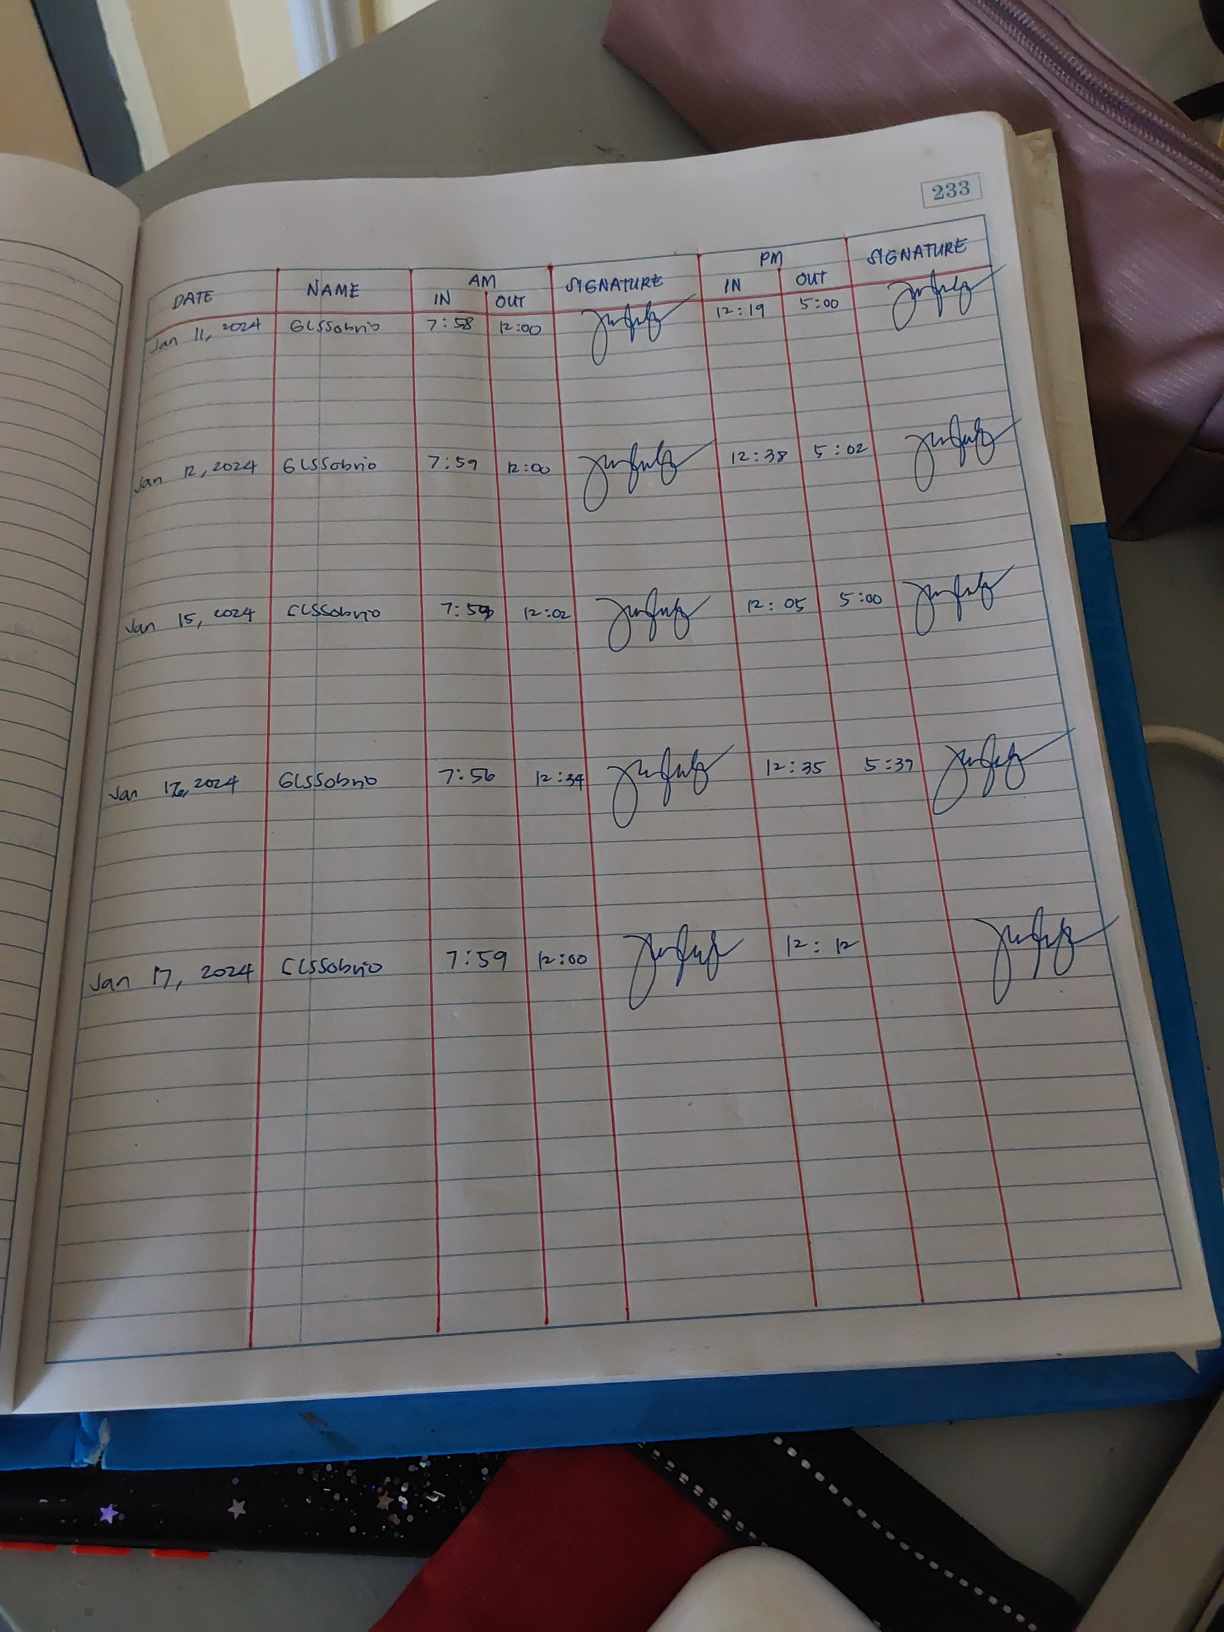 233
DATE NAME AM SIGNATURE PM SIGNATURE
IN OUT IN OUT
Jan 11, 2024 GLSSobrio 7:58 12:00 12:19 5:00
Jan 12, 2024 GLSSobrio 7:59 12:00 12:38 5:02
Jan 15, 2024 GLSSobrio 7:59 12:02 12:05 5:00
Jan 16, 2024 GLSSobrio 7:56 12:34 12:35 5:37
Jan 17, 2024 GLSSobrio 7:59 12:00 12:12